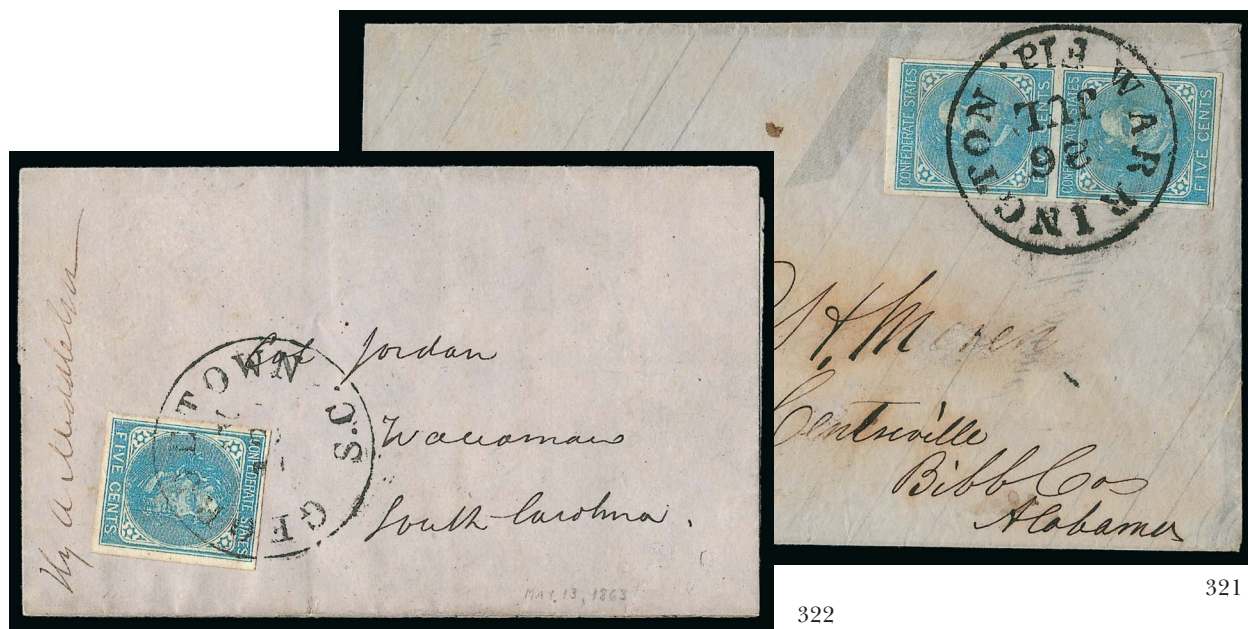 CONFEDERATE STATES
FIVE CENTS
CONFEDERATE STATES
FIVE CENTS
WARRINGTON
Fla.
JUL
26
H,
Centreville
Bibb Co
Alabama
Hy A Middleton
GEORGETOWN
S.C.
CONFEDERATE STATES
FIVE CENTS
Jordan
Waccamaw
South Carolina.
MAY 13, 1863
321
322